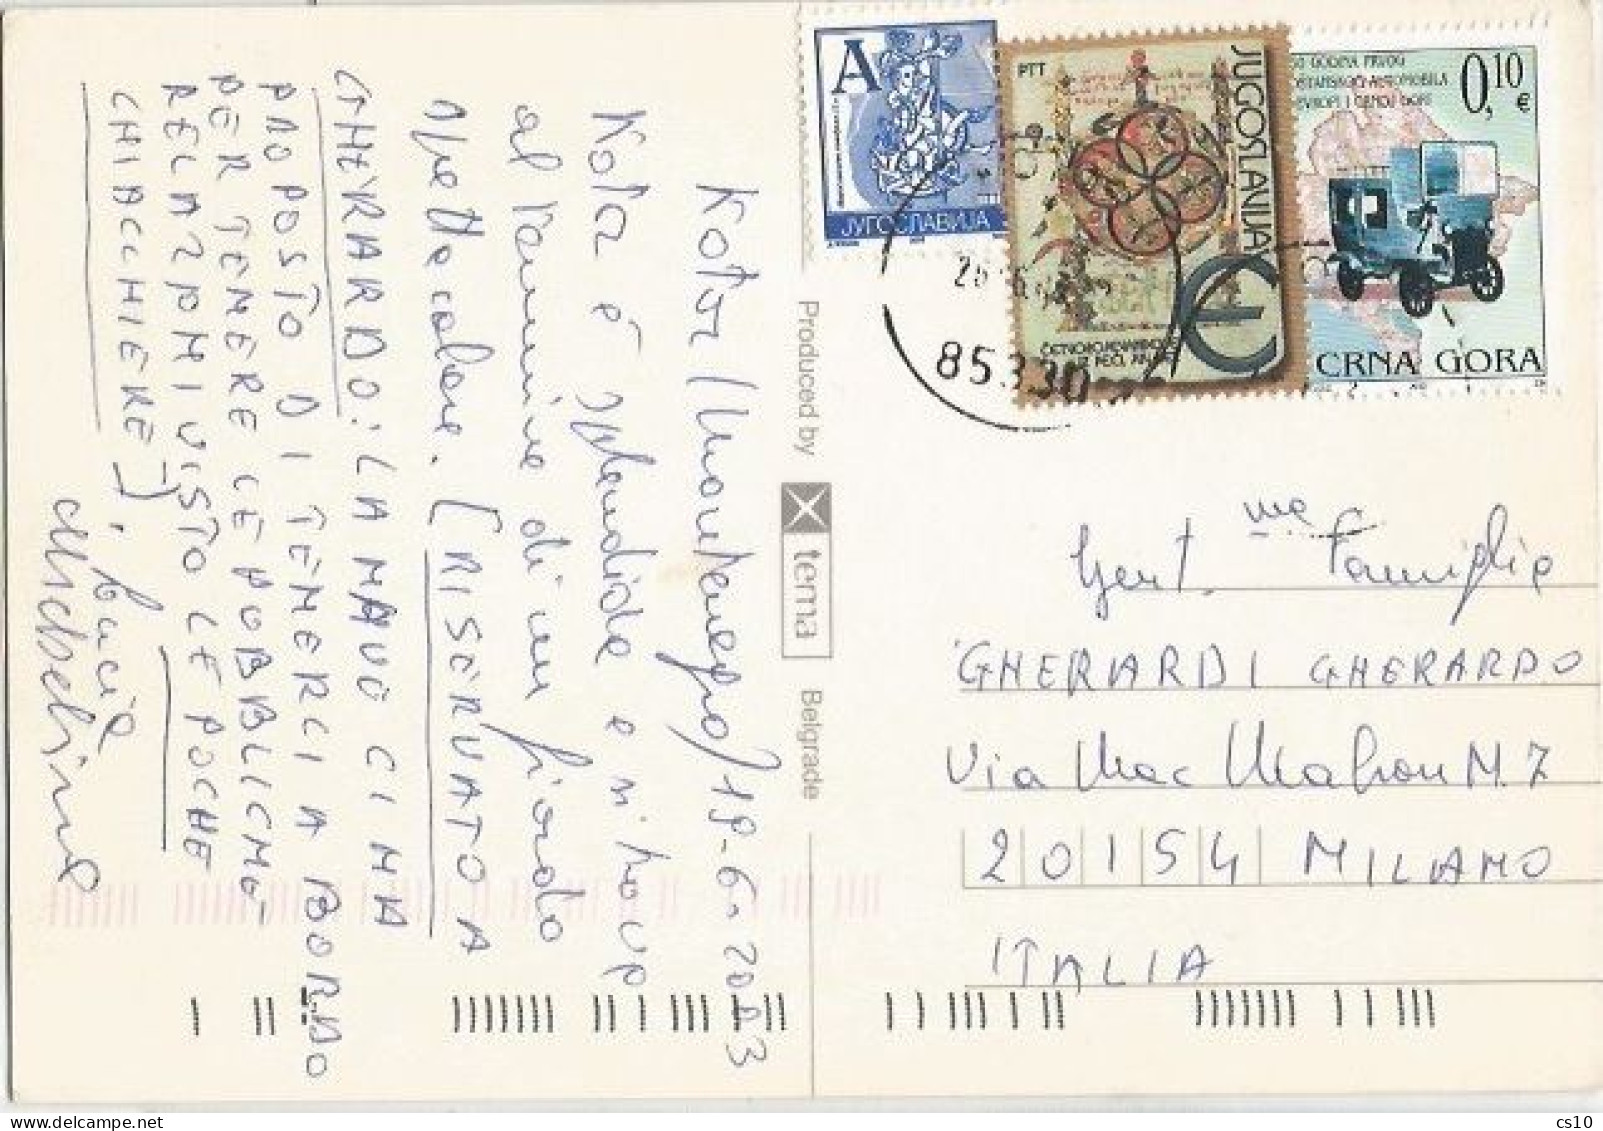 Kotor (Montenegro) 18-6-2003
Kotor è splendida e si trova
al termine di un fiordo
spettacolare. [RISERVATO A
GHERARDO: LA NAVE CI HA
PROPOSTO DI TENERCI A BORDO
PER TENERE LE PUBBLICHE
RELAZIONI VISTO LE POCHE
CHIACCHIERE],
bacie
Produced by
terna
Belgrade
A
ЈУГОСЛАВИЈА
PTT
JUGOSLAVIJA
0,10
€
CRNA GORA
85330
Gent.ma Famiglia
GHERARDI GHERARDO
Via Mac Mahon N. 7
20154 MILANO
ITALIA
cs10